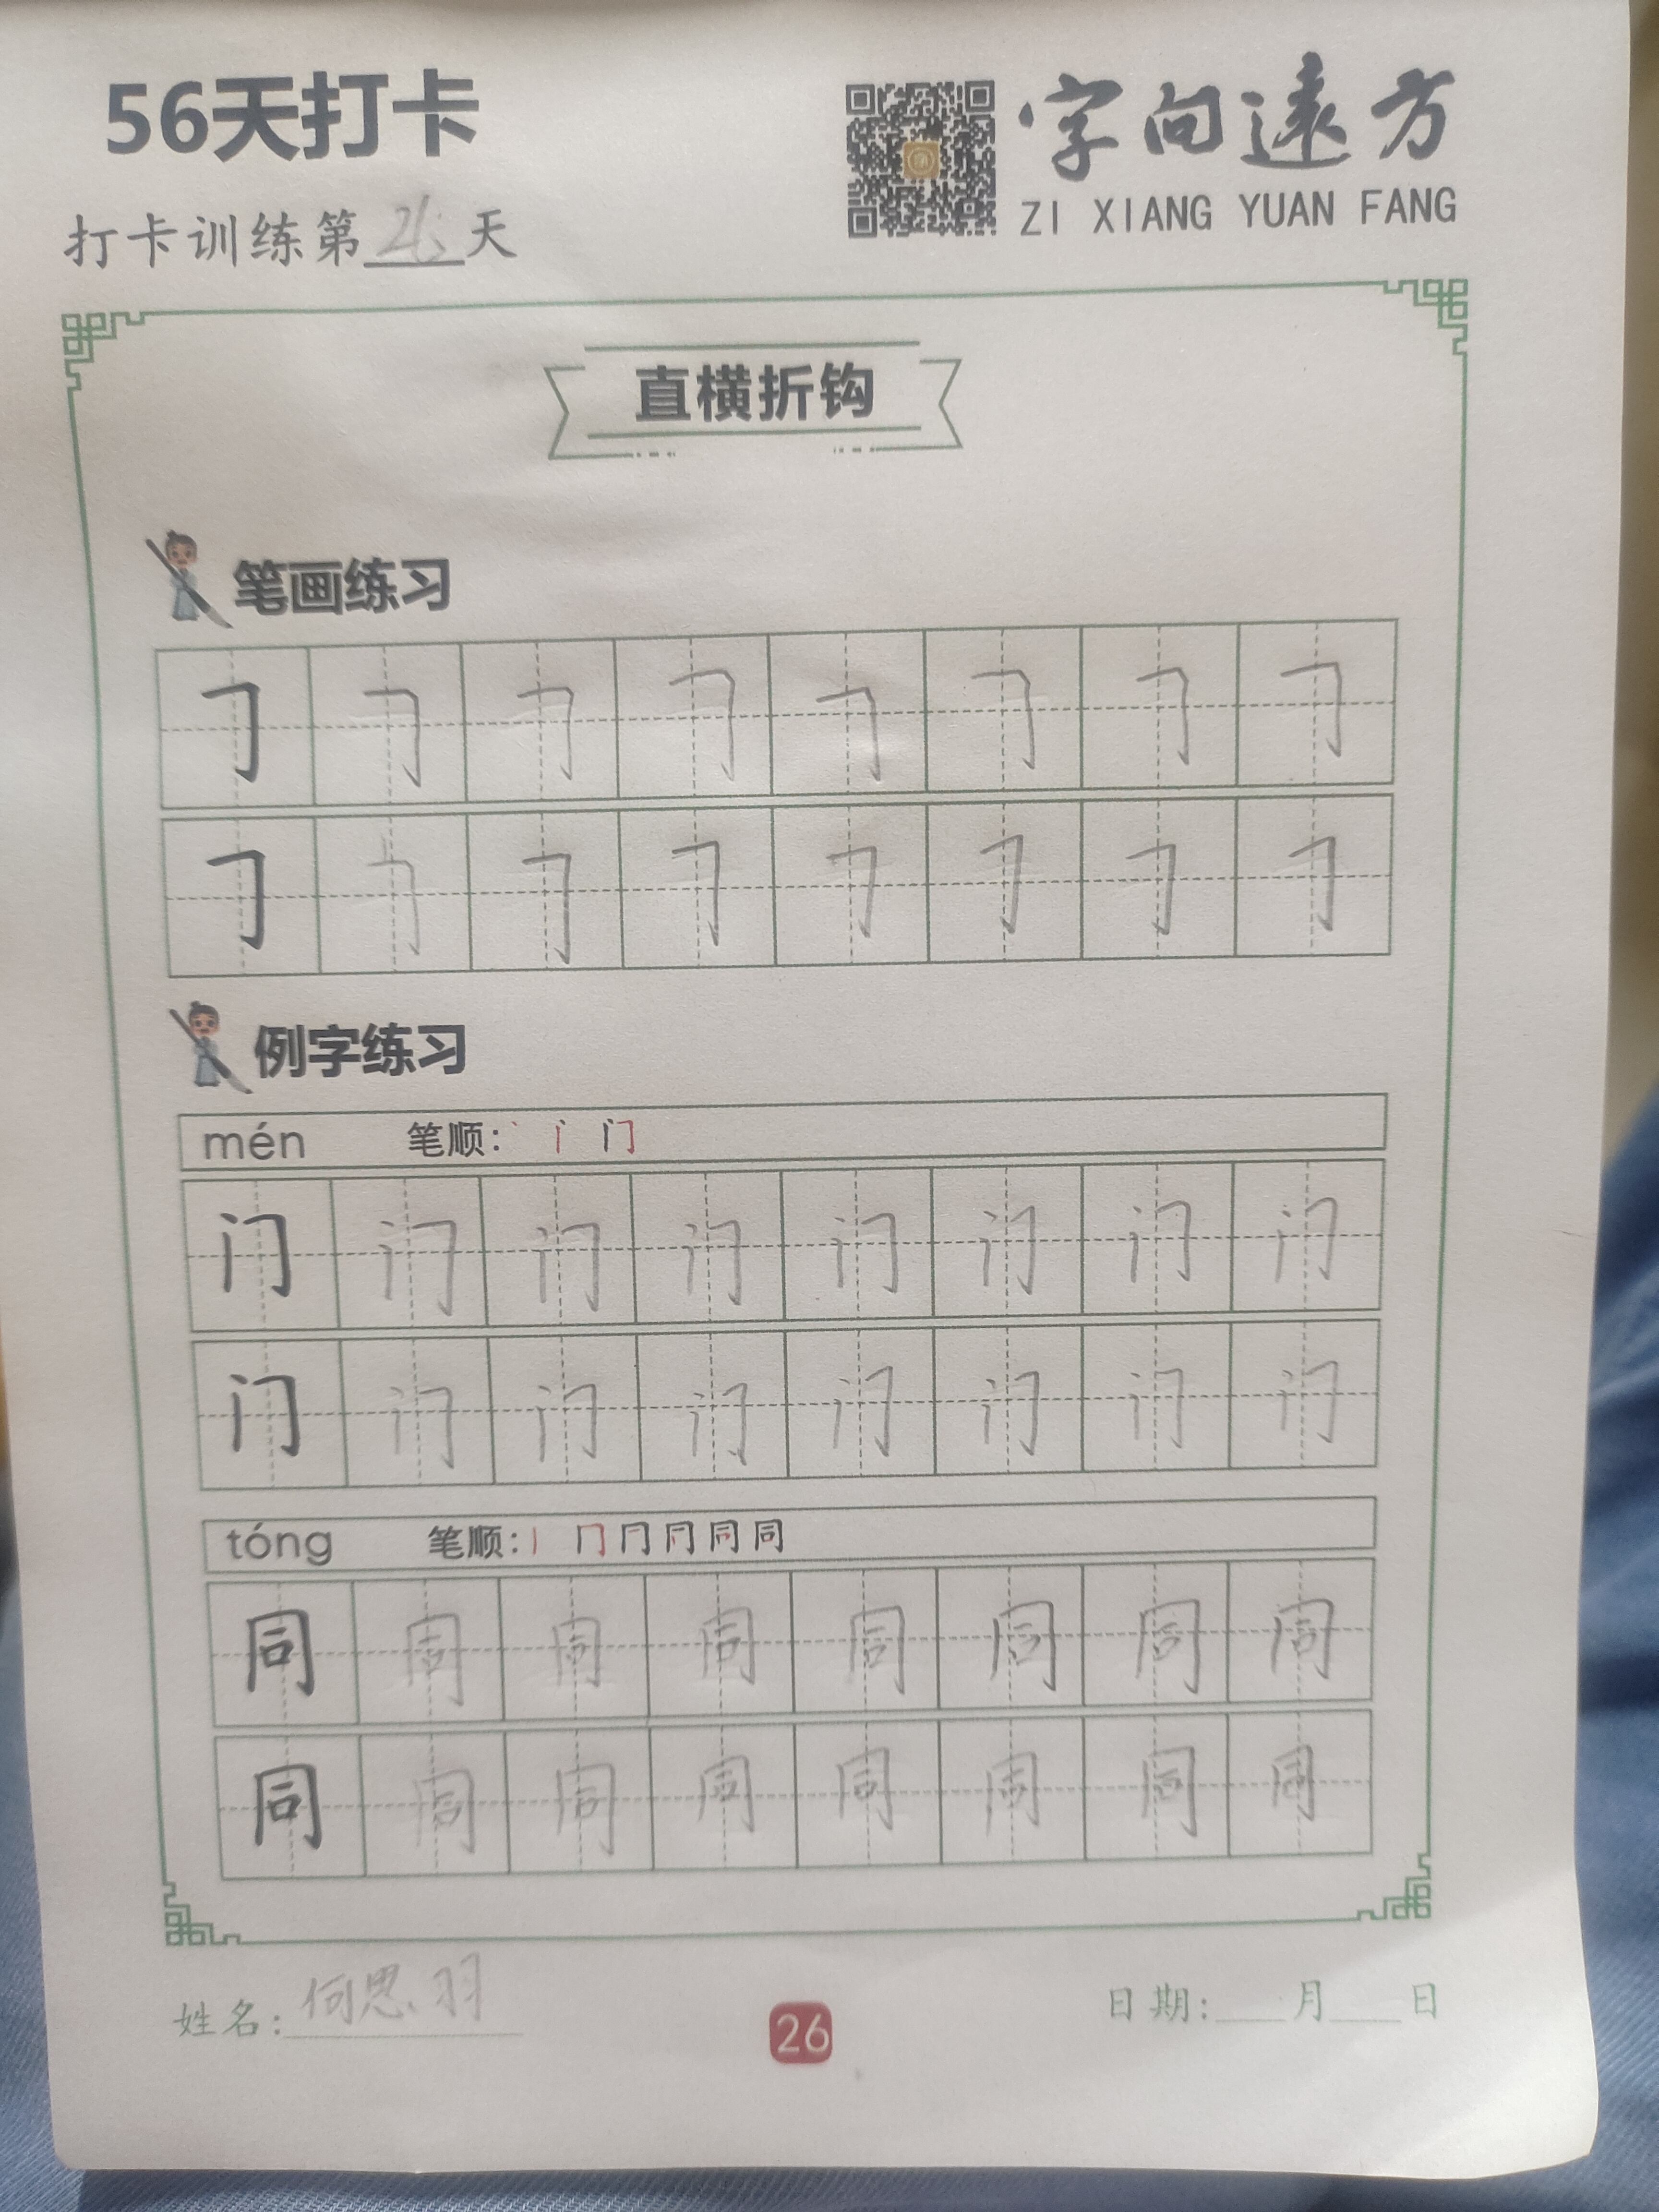 56天打卡
字向遠方
ZI XIANG YUAN FANG
打卡训练第26天
直横折钩
笔画练习
𠃌 𠃌 𠃌 𠃌 𠃌 𠃌 𠃌 𠃌
𠃌 𠃌 𠃌 𠃌 𠃌 𠃌 𠃌 𠃌
例字练习
mén 笔顺: 丶 门
门 门 门 门 门 门 门 门
门 门 门 门 门 门 门 门
tóng 笔顺: 丨 冂 同 同
同 同 同 同 同 同 同 同
同 同 同 同 同 同 同 同
姓名:何思羽
26
日期:___月___日